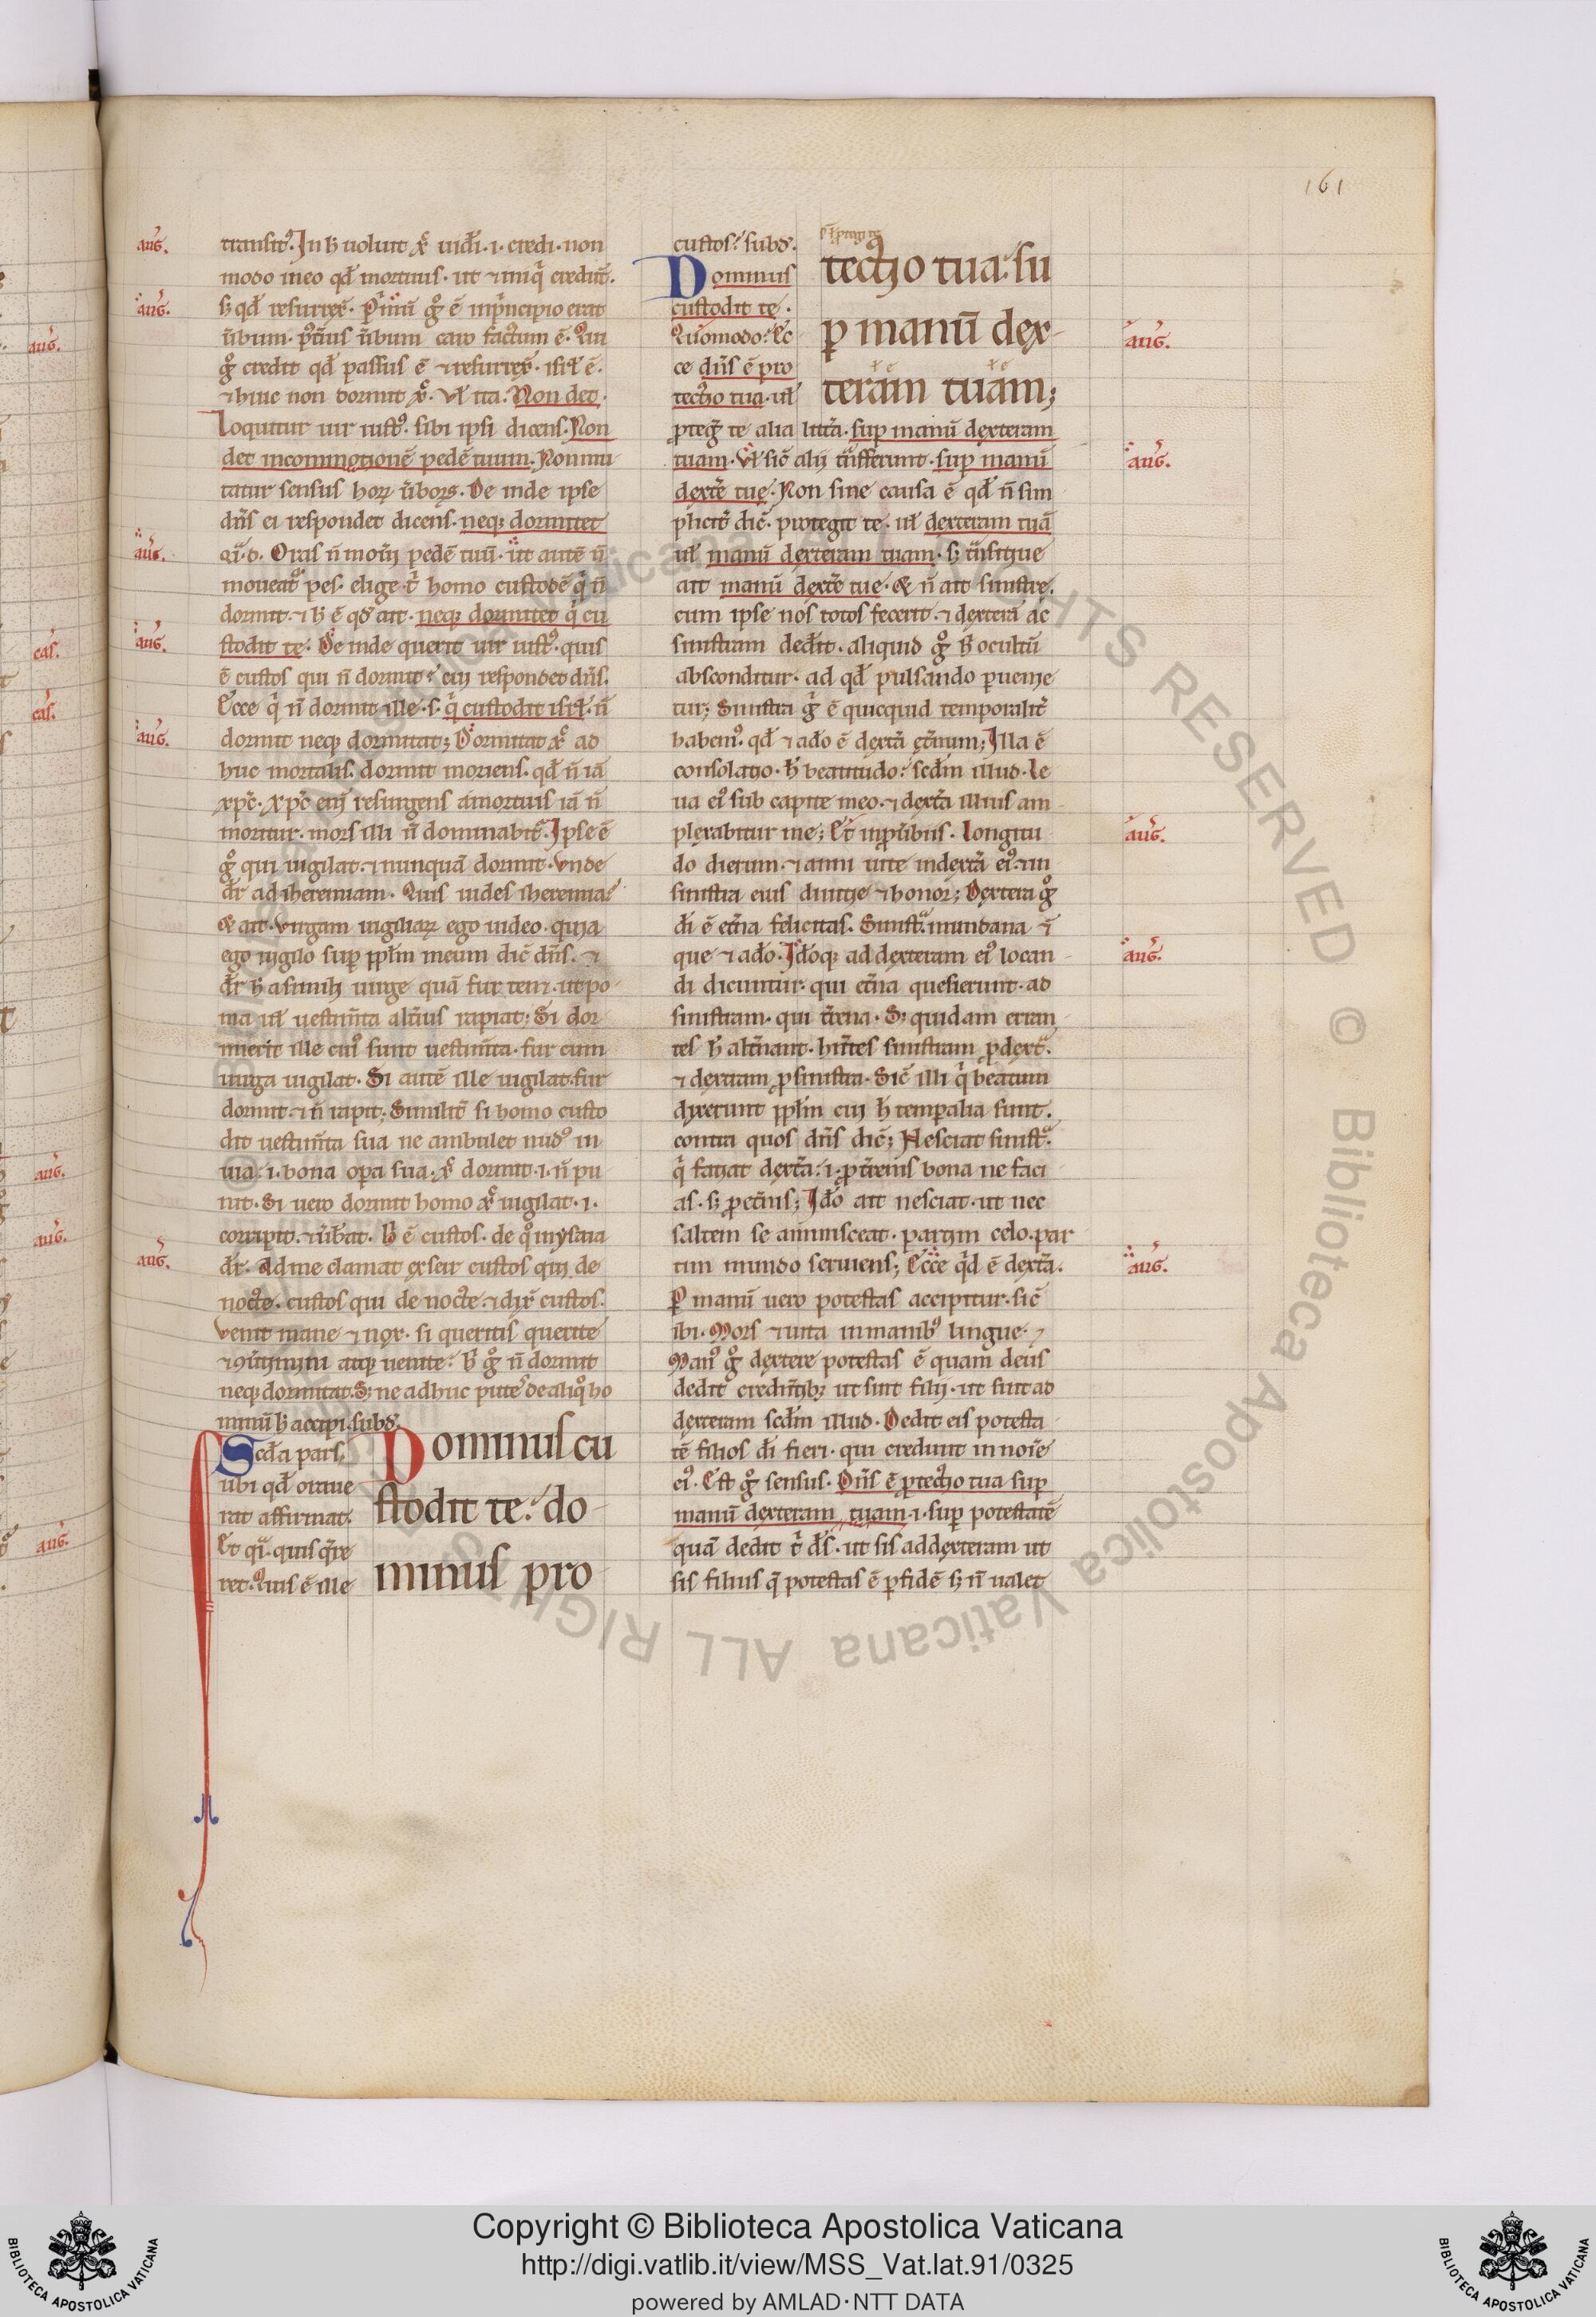 161
transit᷒. In h̄ uoluit xp̄c uid̄i .i. credi . non
modo in eo qd̄ mortuus . ut ⁊ iniq̇ credūt .
s; qd̄ resurrex̄ .
ūbum . caro factum ē . Qui
gͦ credit qd̄ passus ē ⁊ resurrex̄ . isrl̄ ē .
⁊ huic non dormit xp̄c . Vl̄ ita . Non det .
Loquitur uir iust᷒ . sibi ipsi dicens . Non
det in commotionē pedē tuum . Non mu
tatur sensus hoꝝ ūboꝝ . De inde ipse
dn̄s ei respondet dicens . neq; dormitet
moueat᷒ pes . elige t̄ homo custodē q̇ n̄
dormit . ⁊ h̄ ē qd̄ ait . neq; dormitet q̇ cu
stodit te . De inde querit uir iust᷒ . quis
ē custos qui n̄ dormit . cui respondet dn̄s .
Ecce q̇ n̄ dormit ille . s . q̇ custodit isrl̄ . n̄
dormit neq; dormitat ; Dormitat xp̄c ad
huc mortalis . dormit moriens . qd̄ n̄ iā
xpc̄ . xpc̄ eni resurgens a mortuis iā n̄
moritur . mors illi n̄ dominabit᷒ . Ipse ē
gͦ qui uigilat . ⁊ nunquā dormit . Vnde
dr̄ ad iheremiam . Quis uides iheremia ?
& ait . virgam uigiliaꝝ ego uideo . quia
ego uigilo sup ppl̄m meum dic̄ dn̄s . ⁊
ma ul̄ uestim̄ta alt̄ius rapiat ; Si dor
mierit ille cui᷒ sunt uestim̄ta . fur cum
uirga uigilat . Si autē ille uigilat . fur
dormit . ⁊ n̄ rapit ; Similit̄ si homo custo
dit uestim̄ta sua ne ambulet nud᷒ in
uia . i . bona opa sua . xp̄c dormit . i . n̄ pu
nit . Si uero dormit homo xp̄c uigilat . i .
corripit . ⁊ ūb̄at . h̄ ē custos . de qͦ in ysaia
dr̄ . Ad me clamat ex seir custos qui de
nocte . custos qui de nocte . ⁊ dix̄ custos .
Venit mane ⁊ nox . si queritis querite
uenite . h̄ gͦ n̄ dormit
neq; dormitat . S; ne adhuc
minū h̄ accipi . subd̄ .
Scd̄a pars
ubi qd̄ oraue
rat affirmat .
Et qī . quis q̄re
ret . Quis ē ille
Dominus cu
stodit te . do
minus pro
custos ? subd̄ .
Dominus
custodit te .
Quomodo ? Ec
ce dn̄s ē pro
tectio tua . ul̄
tectio tua : su
ꝑ manū dex
teram tuam ;
ꝓteḡ te alia litt̄a . sup manū dexteram
tuam . Vl̄ sic̄ alij t̄nsferunt . sup manū
dext̄e tue . Non sine causa ē qd̄ n̄ sim
plicit̄ dic̄ . protegit te . ul̄ dexteram tuā
ul̄ manū dexteram tuam . s;
ait manū dext̄e tue . & n̄ ait sinistre .
cum ipse nos totos fecerit . ⁊ dexterā ac
sinistram dedit . aliquid gͦ h̄ ocultū
absconditur . ad qd̄ pulsando ꝑuenie
tur ; Sinistra gͦ ē quicquid temporalit̄
habem᷒ . qd̄ ⁊ a do ē dext̄a et̄num ; Illa ē
consolatio . h̄ beatitudo . scd̄m illud . Le
ua ei᷒ sub capite meo . ⁊ dext̄a illius am
plexabitur me ; Et in ꝓūbiis . Longitu
do dierum . ⁊ anni uite in dext̄a ei᷒ . ⁊ in
sinistra eius diuitie ⁊ honor ; Dextera gͦ
di ē et̄na felicitas . Sinist̄a mundana
que ⁊ a do . Idoq; ad dexteram ei᷒ locan
di dicuntur . qui et̄na quesierunt . ad
sinistram . qui t̄rena . S; quidam erran
tes h̄ alt̄nant . hn̄tes sinistram ꝓ dext̄a .
⁊ dextram ꝓ sinistra . Sic̄ illi q̇ beatum
dixerunt ppl̄m cui h̄ temꝑalia sunt .
contra quos dn̄s dic̄ ; Nesciat sinist̄a .
q̇ faciat dext̄a . i . ꝓ t̄renis bona ne faci
as . s; ꝓ et̄nis ; Ido ait nesciat . ut nec
saltem se ammisceat . partim celo . par
tim mundo seruiens ; Ecce q̇d ē dext̄a .
Ꝑ manū uero potestas accipitur . sic̄
ibi . Mors ⁊ uita in manib᷒ lingue .
Man᷒ gͦ dextere potestas ē quam deus
dedit credn̄tib; ut sint filij . ut sint ad
dexteram scd̄m illud . Dedit eis potesta
tē filios di fieri . qui credunt in noīe
ei᷒ . Est gͦ sensus . Dn̄s ē ꝓtectio tua sup
manū dexteram tuam . i . sup potestatē
quā dedit t̄ ds̄ . ut sis ad dexteram ut
sis filius q̄ potestas ē ꝑ fidē s; n̄ ualet
aug̉.
aug̉.
aug̉.
aug̉.
aug̉.
aug̉.
aug̉.
aug̉.
aug̉.
aug̉.
aug̉.
Biblioteca Apostolica Vaticana ALL RIGHTS RESERVED © Biblioteca Apostolica Vaticana ALL RIGHTS RESERVED ©
Copyright © Biblioteca Apostolica Vaticana
http://digi.vatlib.it/view/MSS_Vat.lat.91/0325
powered by AMLAD·NTT DATA
BIBLIOTECA APOSTOLICA VATICANA
BIBLIOTECA APOSTOLICA VATICANA